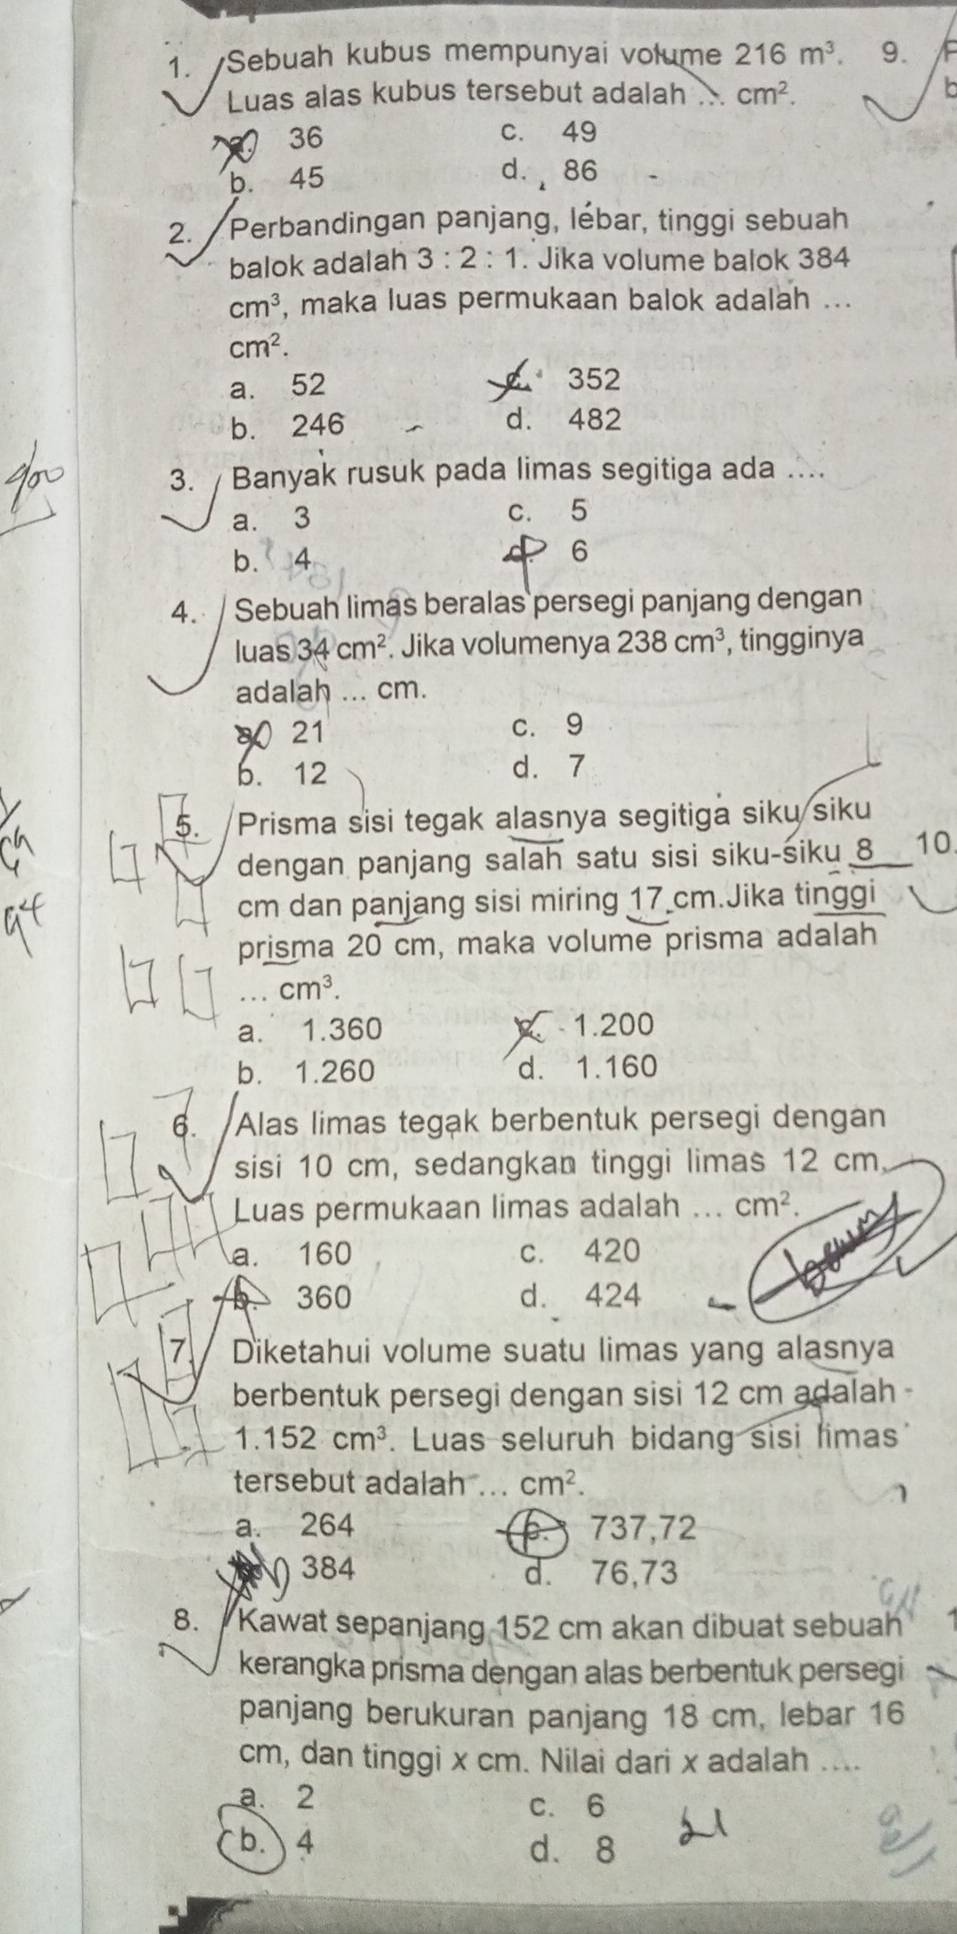 1. Sebuah kubus mempunyai volume 216 m³.
Luas alas kubus tersebut adalah ... cm².
a. 36 c. 49
b. 45 d. 86
2. Perbandingan panjang, lebar, tinggi sebuah
balok adalah 3 : 2 : 1. Jika volume balok 384
cm³, maka luas permukaan balok adalah ...
cm².
a. 52 c. 352
b. 246 d. 482
3. Banyak rusuk pada limas segitiga ada ....
a. 3 c. 5
b. 4 d. 6
4. Sebuah limas beralas persegi panjang dengan
luas 34 cm². Jika volumenya 238 cm³, tingginya
adalah ... cm.
a. 21 c. 9
b. 12 d. 7
5. Prisma sisi tegak alasnya segitiga siku siku
dengan panjang salah satu sisi siku-siku 8
cm dan panjang sisi miring 17 cm.Jika tinggi
prisma 20 cm, maka volume prisma adalah
... cm³.
a. 1.360 c. 1.200
b. 1.260 d. 1.160
6. Alas limas tegak berbentuk persegi dengan
sisi 10 cm, sedangkan tinggi limas 12 cm.
Luas permukaan limas adalah ... cm².
a. 160 c. 420
b. 360 d. 424
7. Diketahui volume suatu limas yang alasnya
berbentuk persegi dengan sisi 12 cm adalah
1.152 cm³. Luas seluruh bidang sisi limas
tersebut adalah ... cm².
a. 264 c. 737,72
384 d. 76,73
8. Kawat sepanjang 152 cm akan dibuat sebuah
kerangka prisma dengan alas berbentuk persegi
panjang berukuran panjang 18 cm, lebar 16
cm, dan tinggi x cm. Nilai dari x adalah ....
a. 2 c. 6
b. 4 d. 8
9.
10.